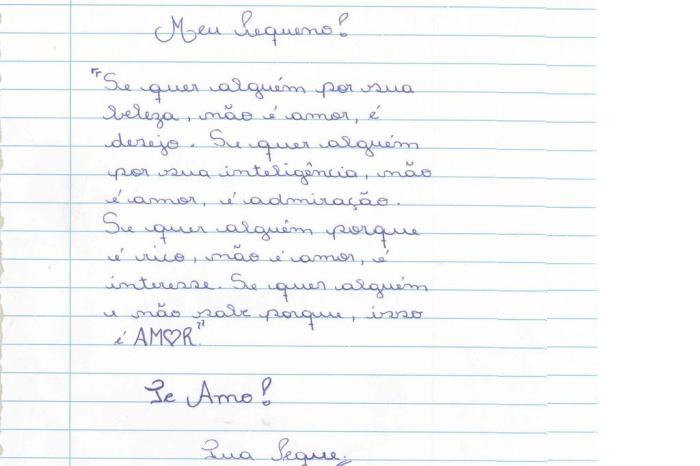 Meu Pequeno!
"Se quer alguém por sua
beleza, não é amor, é
desejo. Se quer alguém
por sua inteligência, não
é amor, é admiração.
Se quer alguém porque
é rico, não é amor, é
interesse. Se quer alguém
e não sabe porque, isso
é AM♡R."
Te Amo!
Sua Peque.